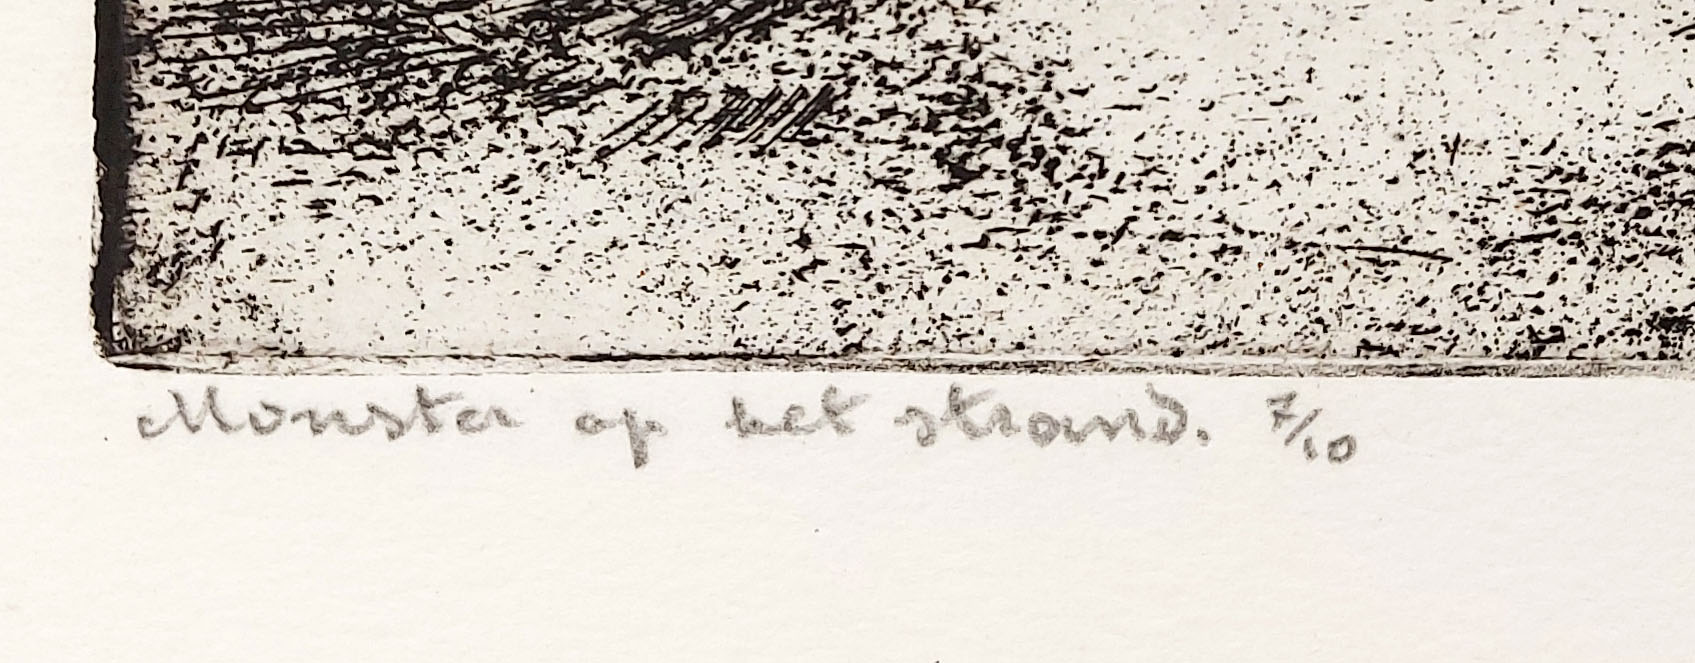 Monster op het strand. 7/10